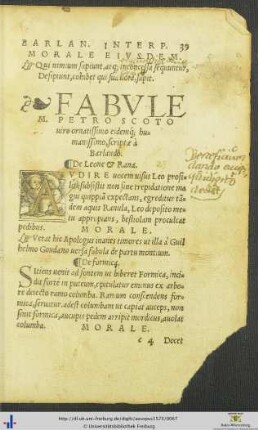 BARLAN. INTERP. 39
MORALE EIVSDEM.
Qui nimium sapiunt, atq; inconcessa sequuntur,
Desipiunt, cohibet qui sua bene sapit.
FABVLE
M. PETRO SCOTO
uiro ornatissimo eidemq; hu-
manissimo, scriptæ à
Barlando.
De Leone & Rana.
AVDIRE uocem uisus Leo prosi-
lijt, subsistit nen sine trepidatione ma
gni quippiã expectans, egreditur tã-
dem aquis Ranula, Leo deposito me-
tu appropians, bestiolam proculcat
pedibus. MORALE.
Vetat hic Apologus inanes timores ut illa à Guil
helmo Goudano uersa fabula de partu montium.
De formica.
Sitiens uenit ad fontem ut biberet Formica, inci-
dit forte in puteum, opitulatur
arbo
re deiecto ramo columba. Ramum conscendens for-
mica, seruatur. adest columbam ut capiat auceps, non
sinit formica, aucupis pedem arripit mordicus, auolat
columba. MORALE.
c 4 Docet
http://dl.ub.uni-freiburg.de/diglit/aesopus1571/0097
© Universitätsbibliothek Freiburg
Baden-Württemberg